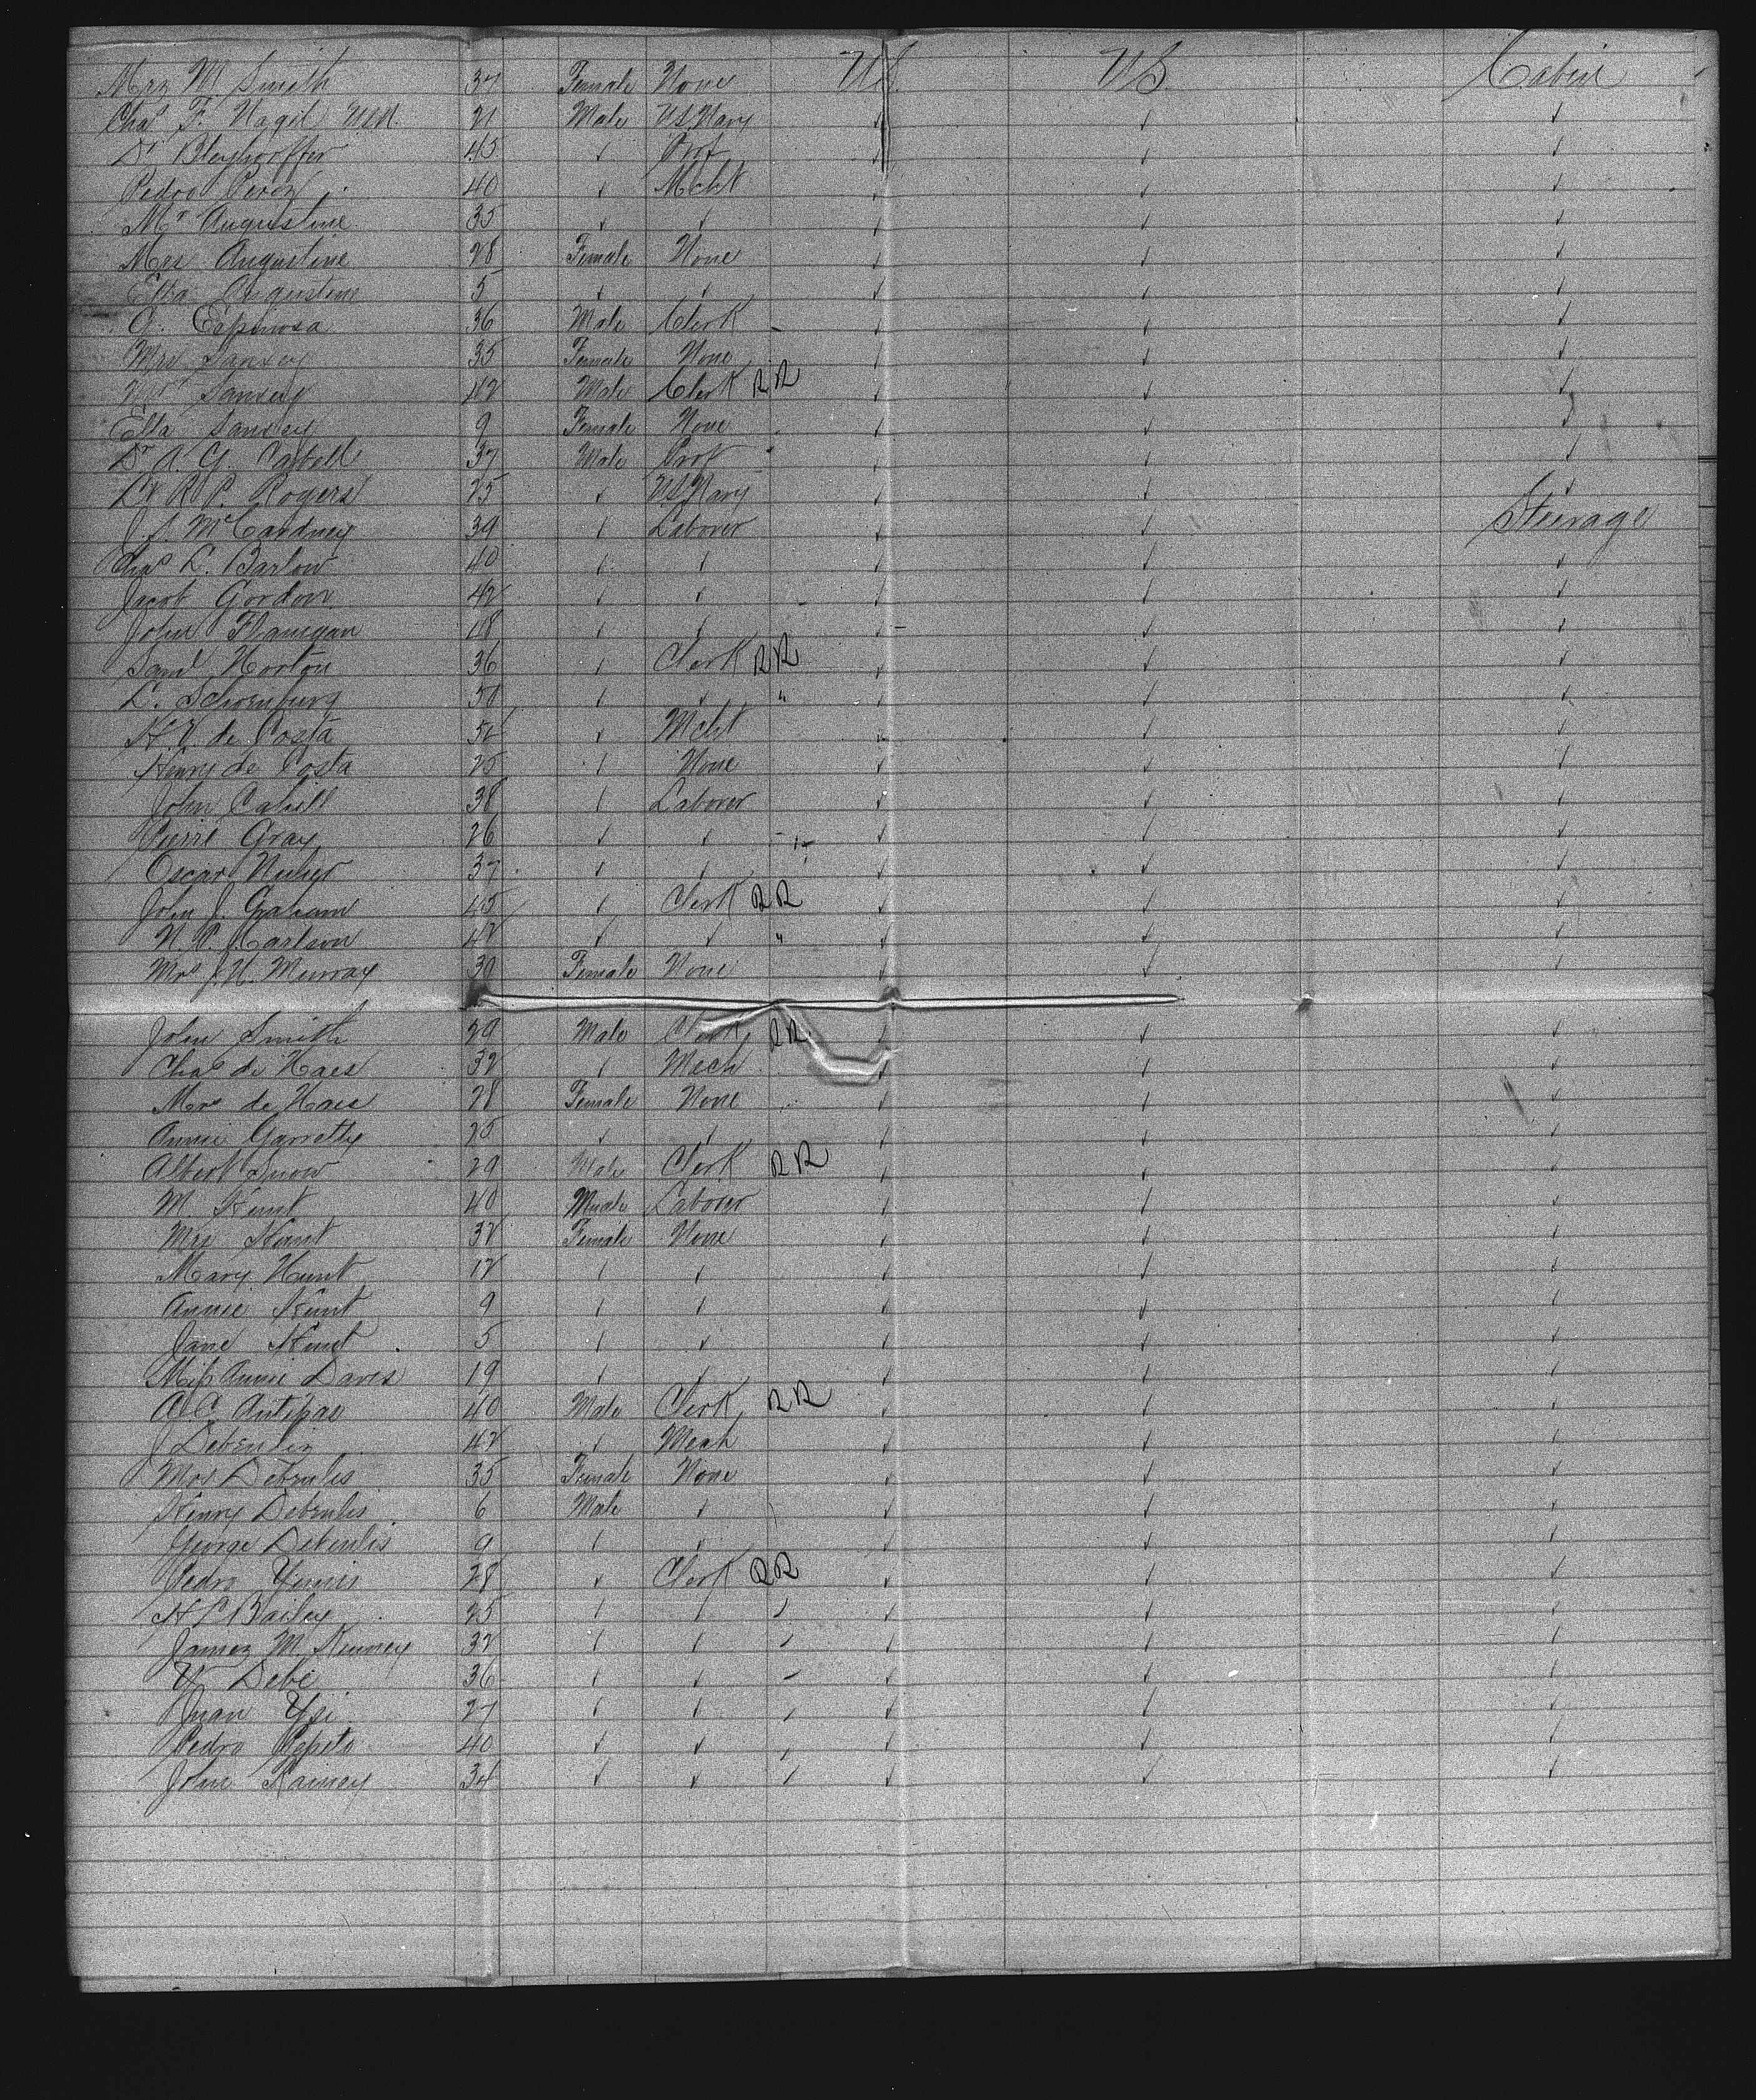 Mrs M Smith 37 Female None US. US. Cabin
Chas F. Nagil USN. 21 Male US Navy ✓ ✓ ✓
Dr 45 ✓ Prof ✓ ✓ ✓
Pedro Perez 40 ✓ Mcht ✓ ✓ ✓
Mr Augustine 35 ✓ ✓ ✓ ✓ ✓
Mrs Augustine 28 Female None ✓ ✓ ✓
Augustine 5 ✓ ✓ ✓ ✓ ✓
Espinosa 36 Male Clerk ✓ ✓ ✓
Mrs 35 Female None ✓ ✓ ✓
42 Male Clerk RR ✓ ✓ ✓
9 Female None ✓ ✓ ✓
Dr A. G. Cabell 37 Male Prof ✓ ✓ ✓
Lt R. P. Rogers 25 ✓ US Navy ✓ ✓ ✓
J. S. McCardney 39 ✓ Laborer ✓ ✓ Steerage
Chas L. Barlow 40 ✓ ✓ ✓ ✓ ✓
Jacob Gordon 42 ✓ ✓ ✓ ✓ ✓
John Flanigan 18 ✓ ✓ ✓ ✓ ✓
Saml Horton 36 ✓ Clerk RR ✓ ✓ ✓
L. 50 ✓ ✓ " ✓ ✓ ✓
H. V. de Costa 50 ✓ Mcht ✓ ✓ ✓
Henry de Costa 25 ✓ None ✓ ✓ ✓
John Cahill 38 ✓ Laborer ✓ ✓ ✓
Pierre Gray 26 ✓ ✓ ✓ ✓ ✓
Oscar 37 ✓ ✓ ✓ ✓ ✓
John J. Graham 45 ✓ Clerk RR ✓ ✓ ✓
N. P. J. Carlson 42 ✓ ✓ " ✓ ✓ ✓
Mrs J. N. Murray 30 Female None ✓ ✓ ✓
John Smith 29 Male Clerk RR ✓ ✓ ✓
Chas de Haes 32 ✓ Mech ✓ ✓ ✓
Mrs de Haes 28 Female None ✓ ✓ ✓
Annie Garretty 25 ✓ ✓ ✓ ✓ ✓
Albert Snow 29 Male Clerk RR ✓ ✓ ✓
M. Hunt 40 Male Laborer ✓ ✓ ✓
Mrs Hunt 32 Female None ✓ ✓ ✓
Mary Hunt 12 ✓ ✓ ✓ ✓ ✓
Annie Hunt 9 ✓ ✓ ✓ ✓ ✓
Jane Hunt 5 ✓ ✓ ✓ ✓ ✓
Miss Annie Davis 19 ✓ ✓ ✓ ✓ ✓
A. C. 40 Male Clerk RR ✓ ✓ ✓
J 42 ✓ Mech ✓ ✓ ✓
Mrs Debenlis 35 Female None ✓ ✓ ✓
Henry Debenlis 6 Male ✓ ✓ ✓ ✓
George Debenlis 9 ✓ ✓ ✓ ✓ ✓
Pedro 28 ✓ Clerk RR ✓ ✓ ✓
H. P. Bailey 25 ✓ ✓ ✓ ✓ ✓ ✓
James M. Kinney 32 ✓ ✓ ✓ ✓ ✓ ✓
Debe 36 ✓ ✓ ✓ ✓ ✓ ✓
Juan 27 ✓ ✓ ✓ ✓ ✓ ✓
Pedro Pepito 40 ✓ ✓ ✓ ✓ ✓ ✓
John Rainey 34 ✓ ✓ ✓ ✓ ✓ ✓